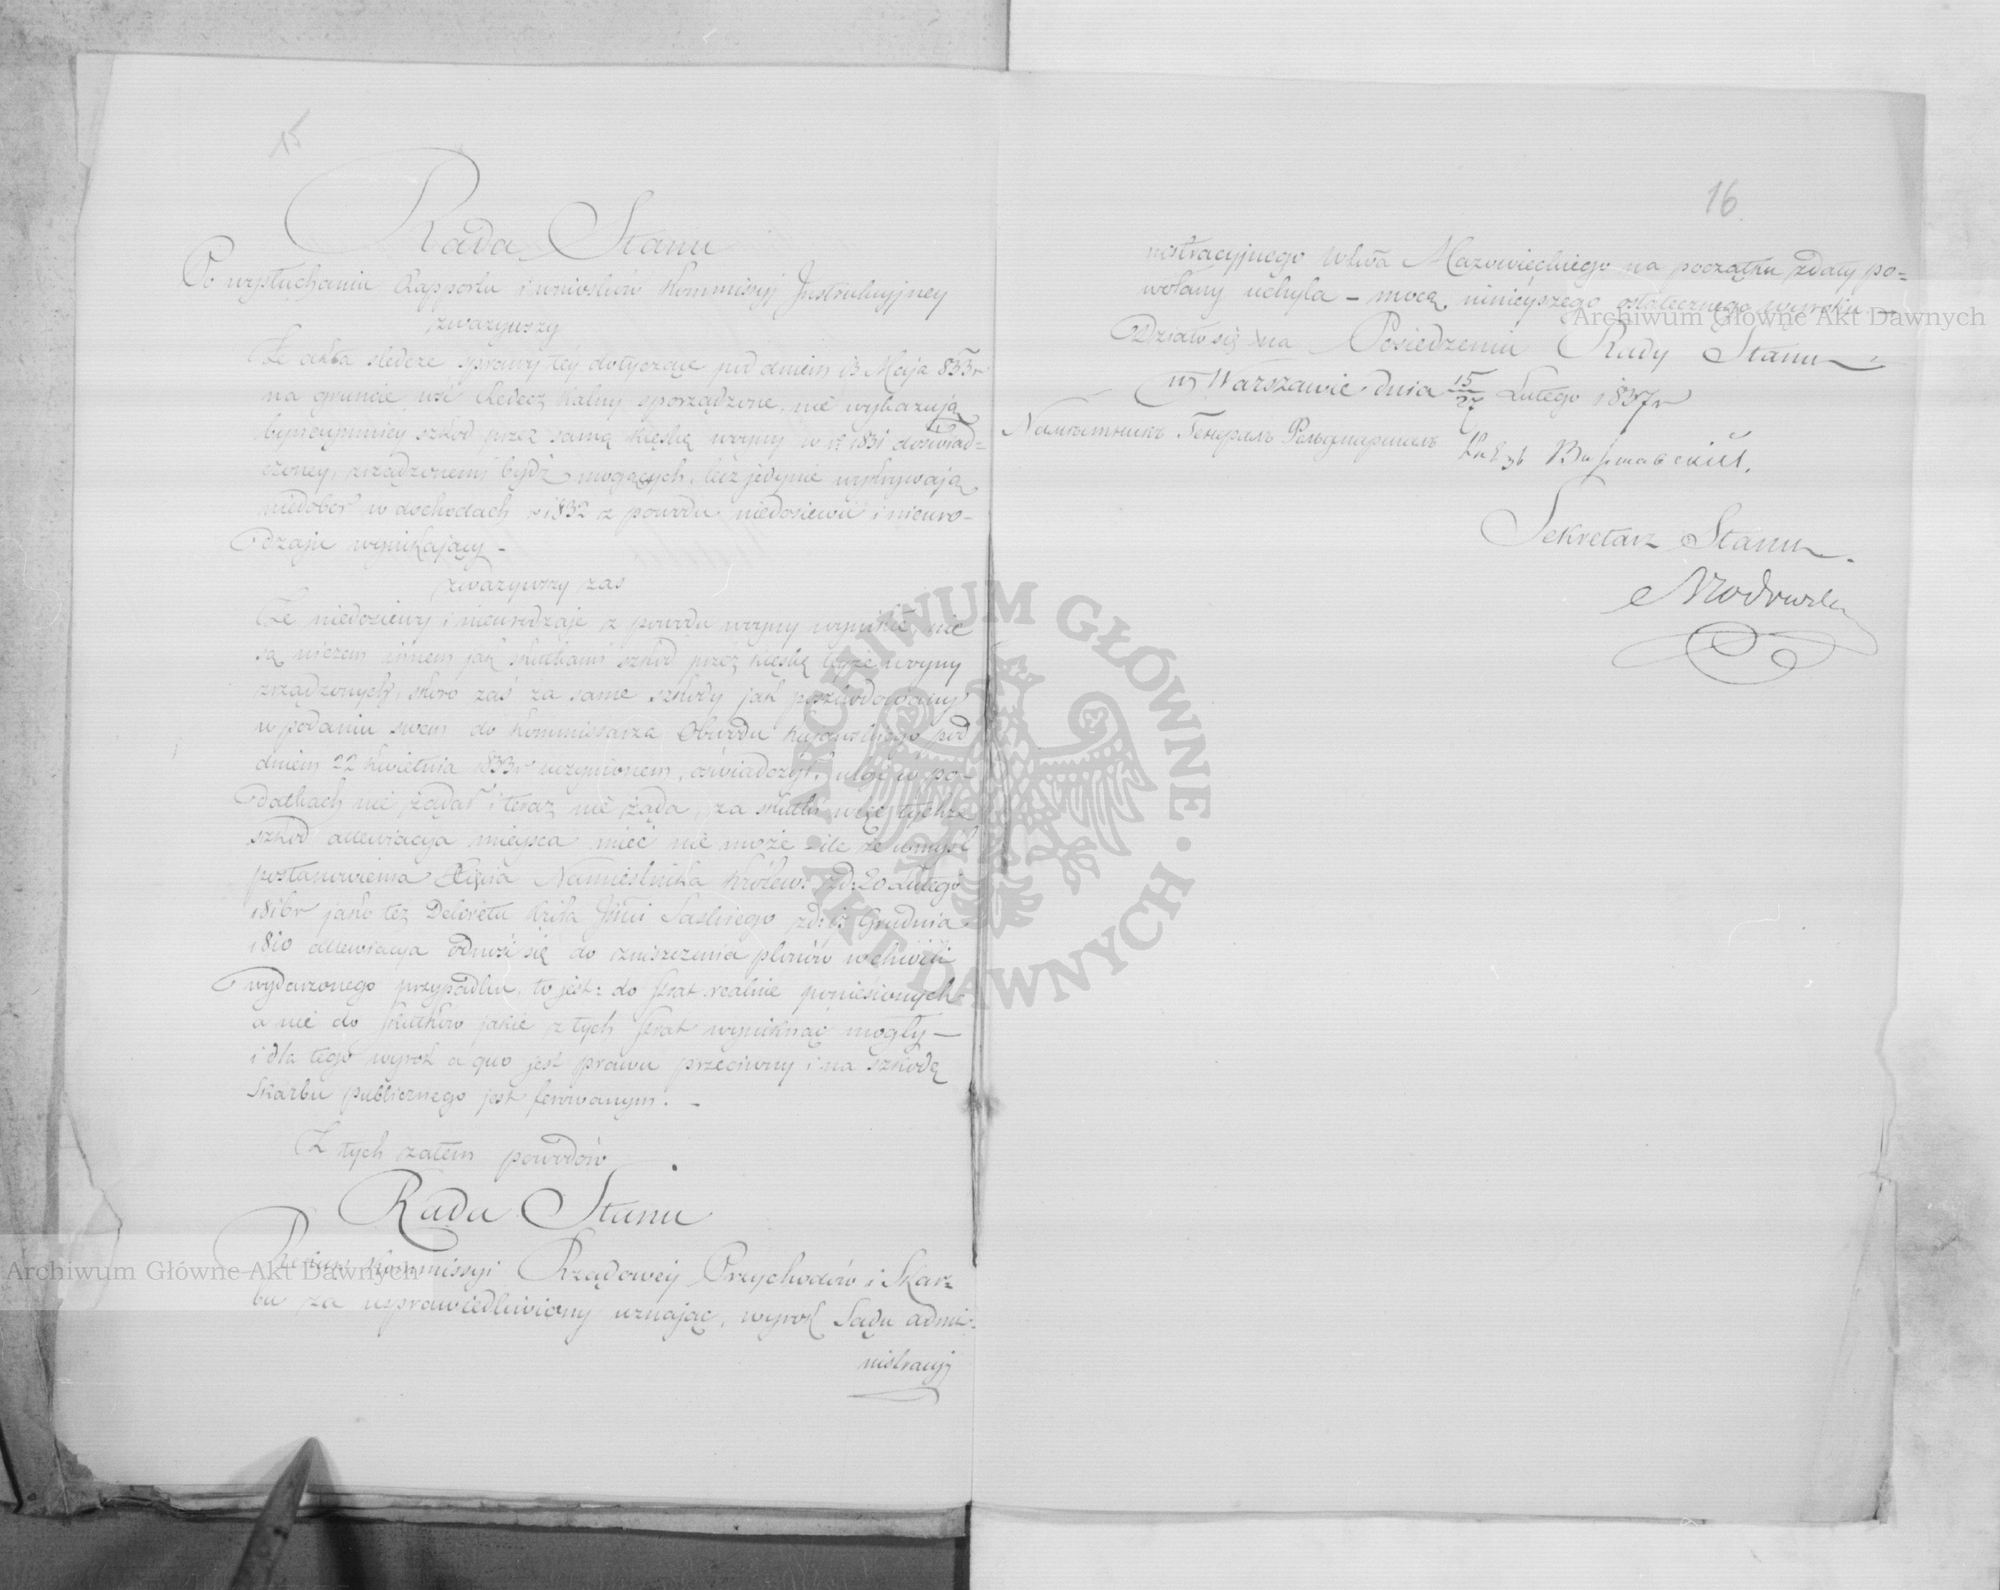 15
Rada Stanu
Po wysłuchaniu Rapportu i wniosków Kommissyi Instrukcyjney
zważywszy
Że akta śledcze sprawy tey dotyczące pod dniem 13 Maja 833r
na gruncie wsi Redecz Kalny sporządzone, nie wykazują
bynaymniey szkód przez samą klęskę woyny w r. 1831 doświad=
czoney, zrządzonemi bydź mogących, lecz jedynie wykrywają
niedobór w dochodach r 1832 z powodu niedosiewu i nieuro-
dzaju wynikający -
zważywszy zaś
Że niedosiewy i nieurodzaje z powodu woyny wynikłe, nie
są niczem innem jak skutkami szkód przez klęskę teyże woyny
zrządzonych, skoro zaś za same szkody jak poszkodowany
w podaniu swem do Kommissarza Obwodu Kujawskiego pod
dniem 22 Kwietnia 1833r uczynionem, oświadczył, ulgi w po-
datkach nie żądał i teraz nie żąda, za skutki więc tychże
szkód allewiacya miejsca mieć nie może - ile że w myśl
postanowienia Xięcia Namiestnika Królew: z d: 20 Lutego
1816r jako też Dekretu Króla Jmci Saskiego z d: Grudnia
1810 allewiacya odnosi się do zniszczenia plonów w chwili
wydarzonego przypadku, to jest: do strat realnie poniesionych
a nie do skutków jakie z tych strat wyniknąć mogły —
i dla tego wyrok a quo jest prawu przeciwny i na szkodę
Skarbu publicznego jest ferowanym. -
Z tych zatem powodów
Rada Stanu
Kommissyi Rządowey Przychodów i Skar=
bu za usprawiedliwiony uznając, wyrok Sądu admi=
nistracyj
16
nistracyjnego Wdztwa Mazowieckiego na początku z daty po=
wołany uchyla - mocą ninieyszego ostatecznego wyroku -
Działo się na Posiedzeniu Rady Stanu
w Warszawie dnia 15/27 Lutego 1837r
Намѣстникъ Генералъ Фельдмаршалъ Князь Варшавскій.
Sekretarz Stanu
Archiwum Główne Akt Dawnych
Archiwum Główne Akt Dawnych
ARCHIWUM GŁÓWNE AKT DAWNYCH